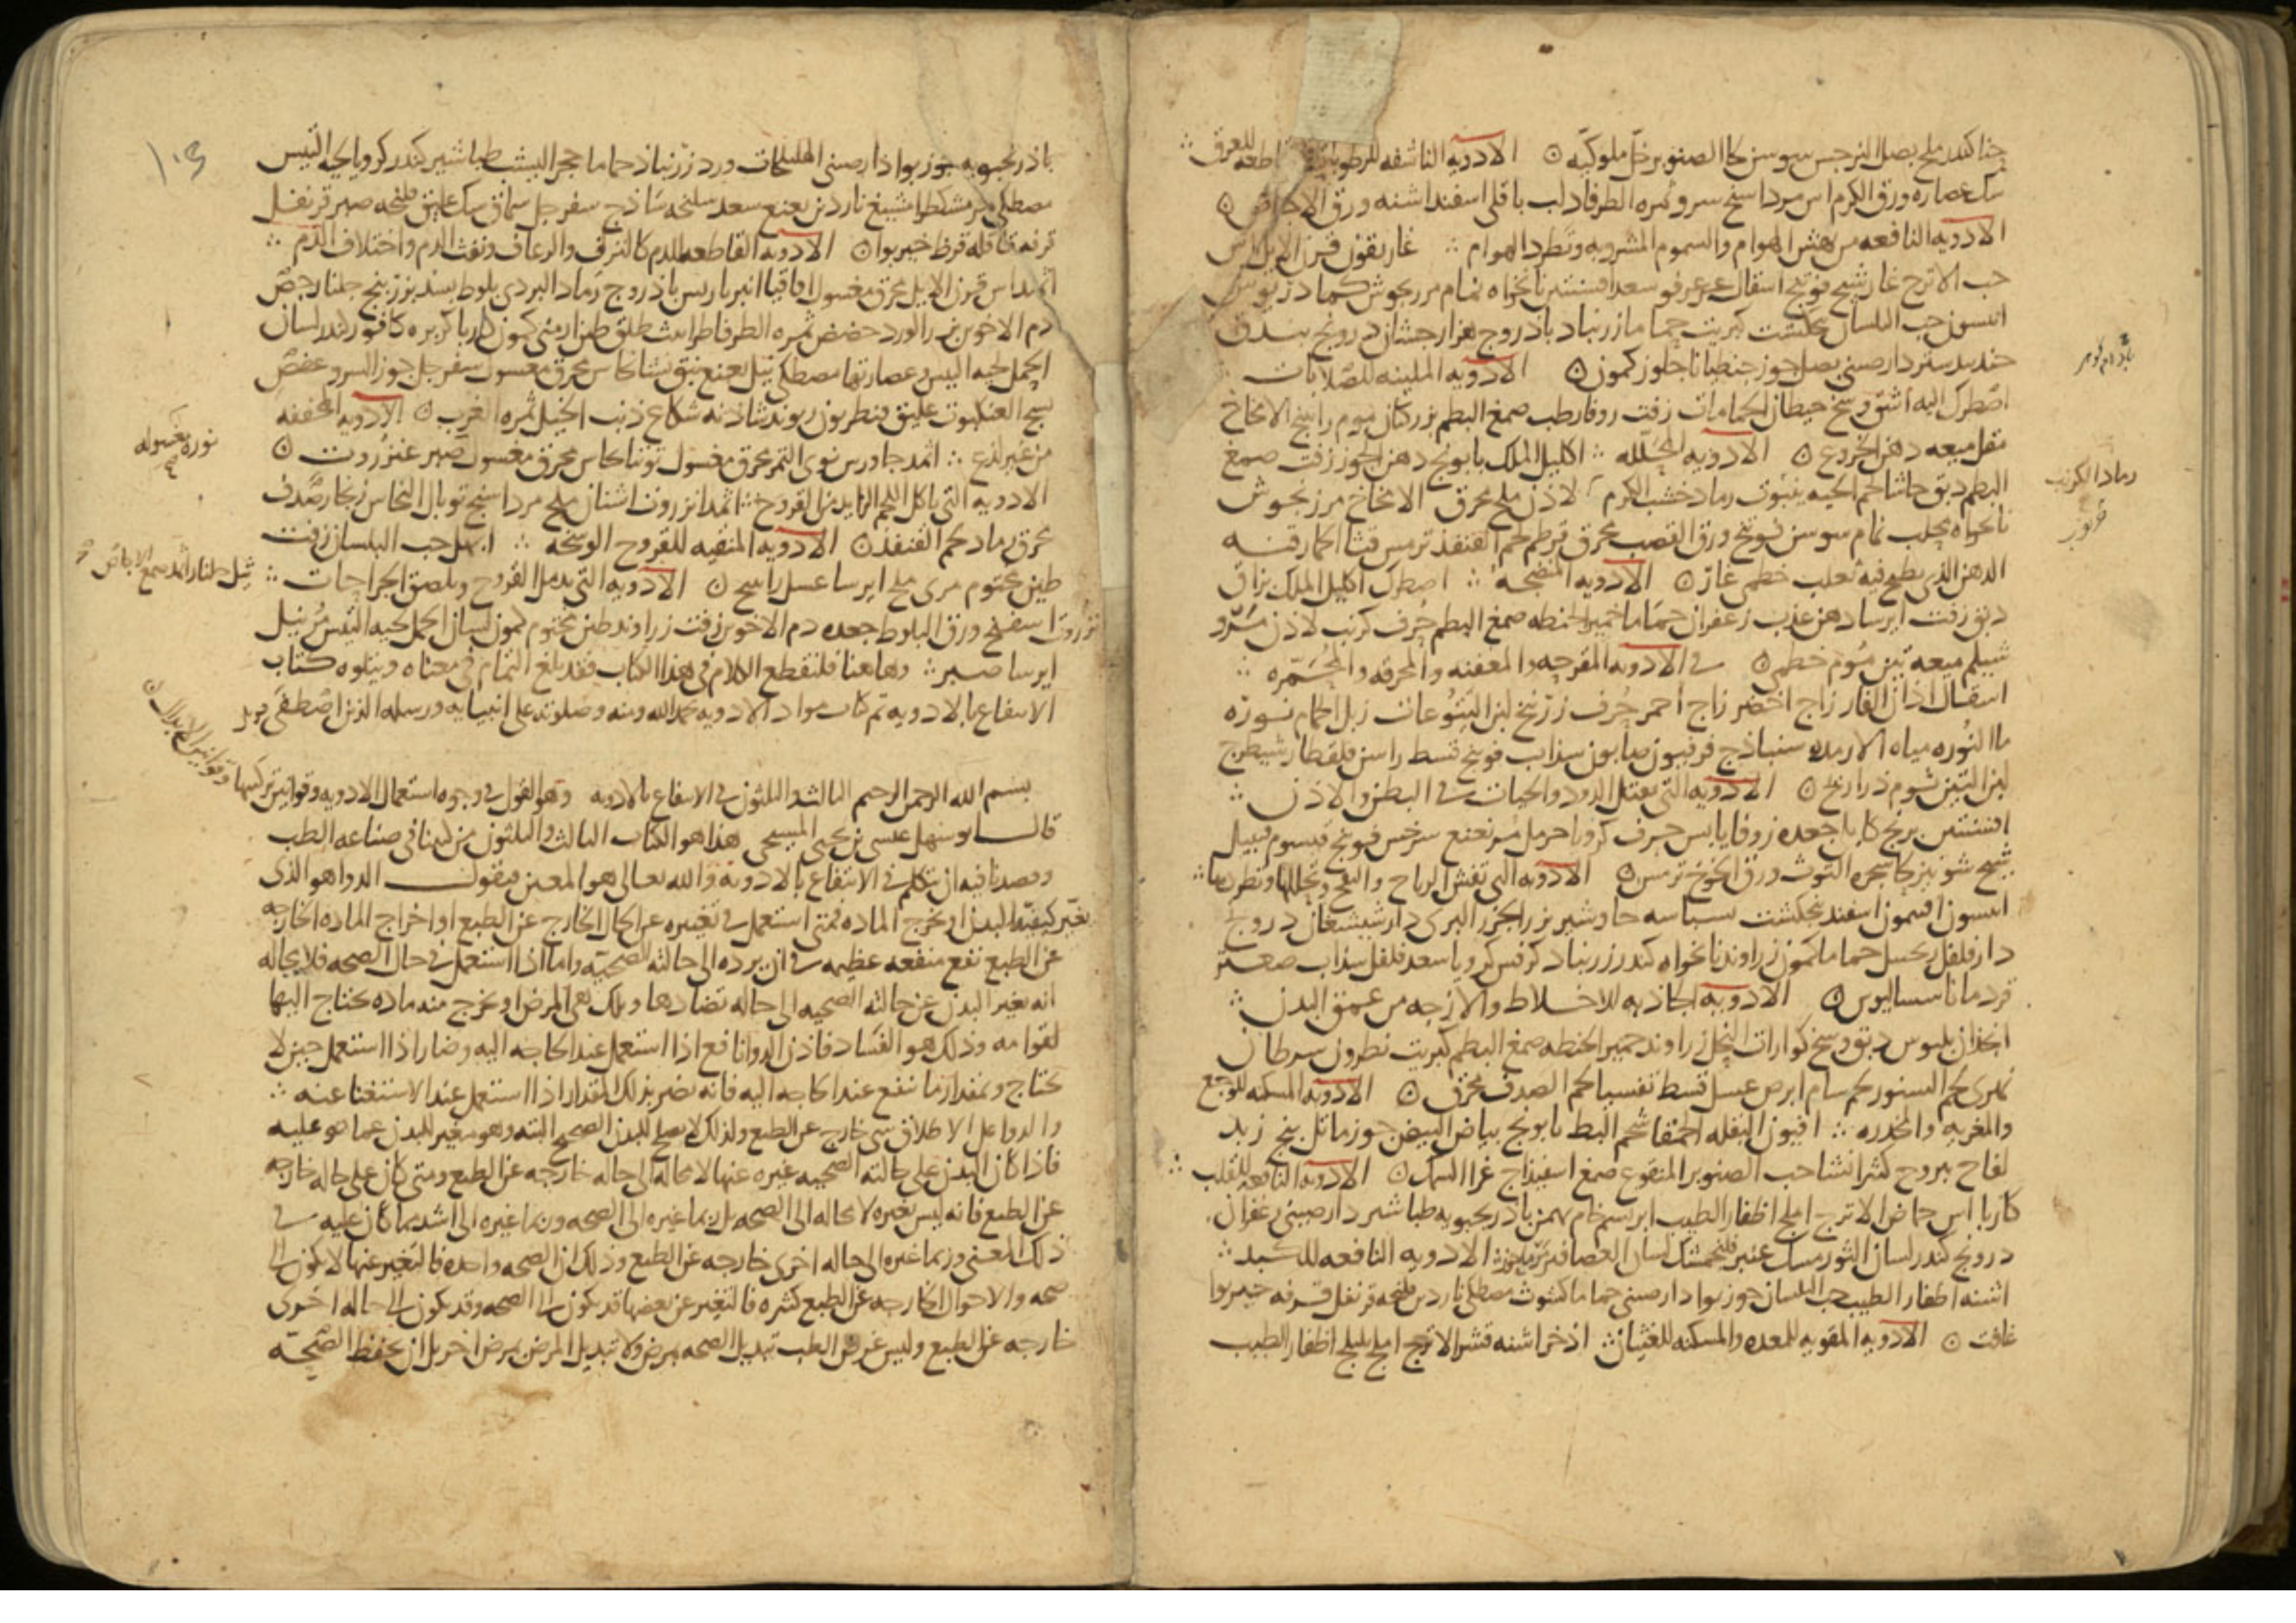 حنا كندر ملح بصل النرجس سوسن كاالصنوبر خل ملوكيه ن الادويه الناشفه للرطوبات قاطعه للعرق
سك عصاره ورق الكرم اس مرداسنج سرو ثمره الطرفا دلب باقلى اسفنداشنه ورق الاجاص ن
الادويه النافعه من نهش الهوام والسموم المشروبه وتطرد الهوام غاريقون قرن الايل اس
حب الاترج غار شيح فوتنج اسقال عرعر فو سعد افسنتين نانخواه نمام مرزنجوش كمادريوس
انيسون حب البلسان بنجنكشت كبريت حماما زرنباد باذروج هزارجشان درونج بندق
جندبيدستر دارصينى بصل جوز جنطيانا جلوز كمون ن الادويه الملينه للصلابات
اصطرك اليه اشق وسخ حيطان الحمامات زفت روفا رطب صمغ البطم بزر كتان ثوم راتينج الامخاخ
مقل ميعه دهن الخروع ن الادويه المحلله اكليل الملك بابونج دهن الجوز زفت صمغ
البطم دبق حاشا لحم الحيه ينبوت رماد خشب الكرم لاذن ملح محرق الامخاخ مرزنجوش
نانخواه محلب نمام سوسن فوتنج ورق القصب محرق قرطم لحم القنفذ ترمس قثا الحمار قنه
الدهن الذى يطبخ فيه ثعلب خطمى غار ن الادويه المنضجه اصطرك اكليل الملك بزاق
دبق زفت ايرسا دهن عذب زعفران حماما خمير الحنطه صمغ البطم جرف كرنب لاذن مرو
شيلم ميعه تين ثوم خطمى ن فى الادويه المقرحه والمعفنه والمحرقه والمحمره
اسقال اذان الفار زاج اخضر زاج احمر جرف زرنيخ لبن اليتوعات زبل الحمام نوره
ما النوره مياه الارمده سنباذج فربيون صابون سذاب فوتنج قسط راسن قلقطار شيطرج
لبن التين ثوم ذراريح ن الادويه التى تقتل الدود والحيات فى البطن والاذن
افسنتين برنج كابلى جعده زوفا يابس حرف كرويا حرمل مر نعنع سرخس فوتنج قيسوم قنبيل
شيح شونيز كا شجره التوث ورق الخوخ ترمس ن الادويه التى تفش الرياح والنفخ وتحللها وتطردها
انيسون افتمون اسفند بنجنكشت بسباسه جاوشير بزر الجزر البرى دارشيشغان دروج
دارفلفل زنجبيل حماما كمون زراوند نانخواه كندر زرنباد كرفس كرويا سعد فلفل سذاب صعتر
قردمانا سساليوس ن الادويه الجاذبه للاخلاط والازجه من عمق البدن
انجذان بلبوس دبق وسخ كوارات النحل زراوند خمير الحنطه صمغ البطم كبريت نطرون سرطان
نهرى لحم السنور لحم سام ابرص عسل قسط تفسيا لحم الصدف محرق ن الادويه المسكنه للوجع
والمغريه والمخدره افيون البقله الحمقا شحم البط بابونج بياض البيض جوز ماثل بنج زبد
لفاح يبروح كثيرا نشا حب الصنوبر المنقوع صمغ اسفيذاج غرا السمك ن الادويه النافعه للقلب
كاربا اس حماض الاترج املج اظفار الطيب ابريسم خام بهمن باذرنجبويه طباشير دارصينى زعفران
درونج كندر لسان الثور مسك عنبر فلنجمشك لسان العصافير الادويه النافعه للكبد
اشنه اظفار الطيب حب البلسان جوزبوا دارصينى حماما كشوث مصطكى ناردين فلنجه قرنفل قرفه خيربوا
غافت ن الادويه المقويه للمعده والمسكنه للغثيان اذخر اشنه قشر الاترج املج بليلج اظفار الطيب
رماد الكرنب
باذرنجبويه جوزبوا دارصينى الهليلجات ورد زرنباذ حماما حجر اليشب طباشير كندر كرويا لحيه التيس
مصطكى مر مشكطرامشيغ ناردين نعنع سعد سليخه ساذج سفرجل سماق سك عليق فلنجه صبر قرنفل
قرفه قاقله قرظ خيربوا ن الادويه القاطعه للدم كالنزف والرعاف ونفث الدم واختلاف الدم
اثمد اس قرن الايل محرق مغسول اقاقيا انبرباريس باذروج رماد البردى بلوط بسد بزر بنج جلنار جص
دم الاخوين بزر الورد حضض ثمره الطرفا طراثيث طلق طين ارمنى كمون كاربا كزبره كافور كندر لسان
الحمل لحيه التيس وعصارتها مصطكى نيل نعنع نبق نشا نحاس محرق مغسول سفرجل جوز السرو عفص
نسج العنكبوت عليق قنطريون ريوند شاذنه شكاع ذنب الخيل ثمره الغرب ن الادويه المجففه
من غير لذع اثمد جاورس نوى التمر محرق مغسول توتيا نحاس محرق مغسول صبر عنزروت ن
الادويه التى تاكل اللحم الزايد من القروح اثمد انزروت اشنان ملح مرداسنج توبال النحاس زنجار صدف
محرق رماد لحم القنفذ ن الادويه المنقيه للقروح الوسخه ابهل حب البلسان زفت
طين مختوم مرى ملح ايرسا عسل راتينج ن الادويه التى تدمل القروح وتلصق الجراحات
نزروت اسفنج ورق البلوط جعده دم الاخوين زفت زراوند طين مختوم كمون لسان الحمل لحيه التيس مر نيل
ايرسا صبر وهاهنا فلنقطع الكلام فى هذا الكتاب فقد بلغ التمام فى معناه ويتلوه كتاب
الانتفاع بالادويه تم كتاب مواد الادويه بحمد الله ومنه وصلوته على انبيايه ورسله الذين اصطفى
نوره مغسوله
نيل جلنار اثمد صمغ الاجاص
بسم الله الرحمن الرحيم الثالث والثلثون فى الانتفاع بالادويه وهو القول فى وجوه استعمال الادويه وقوانين تركيبها وقوانين الابدال
قال ابوسهل عيسى بن يحيى المسيحى هذا هو الكتاب الثالث والثلثون من كتبنا فى صناعه الطب
وقصدنا فيه ان نتكلم فى الانتفاع بالادويه والله تعالى هو المعين فنقول الدوا هو الذى
يغير كيفيه البدن او يخرج الماده فمتى استعمل فى تغييره عن الحال الخارج عن الطبع او اخراج الماده الخارجه
عن الطبع نفع منفعه عظيمه فى ان يرده الى حالته الصحيه واما اذا استعمل فى حال الصحه فلا محاله
انه يغير البدن عن حالته الصحيه الى حاله تضادها وتلك هى المرض او يخرج منه ماده يحتاج اليها
لقوامه وذلك هو الفساد فاذن الدوا نافع اذا استعمل عند الحاجه اليه وضار اذا استعمل حين لا
يحتاج وبمقدار ما ينفع عند الحاجه اليه فانه يضر بذلك المقدار اذا استعمل عند الاستغنا عنه
والدوا على الاطلاق شى خارج عن الطبع ولذلك لا يصلح للبدن الصحيح البته وهو مغير للبدن عما هو عليه
فاذا كان البدن على حالته الصحيه غيره عنها لا محاله الى حاله خارجه عن الطبع ومتى كان على حاله خارجه
عن الطبع فانه ليس تغيره لا محاله الى الصحه بل ربما غيره الى الصحه وربما غيره الى اشد مما كان عليه فى
ذلك المعنى وربما غيره الى حاله اخرى خارجه عن الطبع وذلك ان الصحه واحده فالتغير عنها لا يكون الى
صحه والاحوال الخارجه عن الطبع كثيره فالتغير عن بعضها قد يكون الى الصحه وقد يكون الى حاله اخرى
خارجه عن الطبع وليس غرض الطب تبديل الصحه بمرض ولا تبديل المرض بمرض اخر بل ان يحفظ الصحه